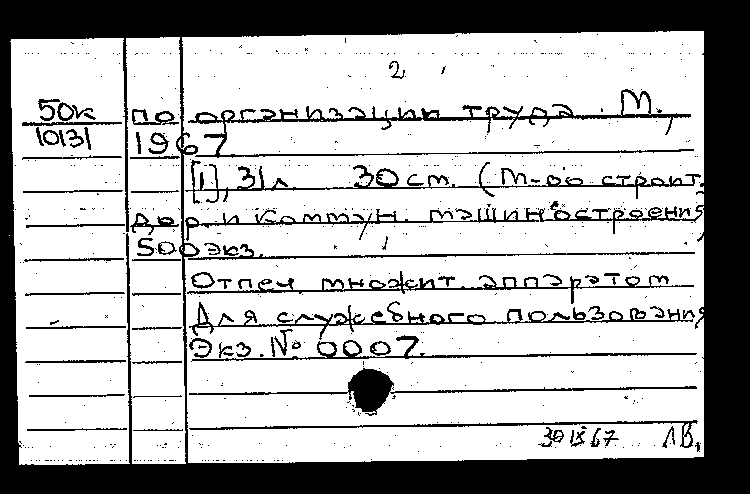 2
50к по организации труда. М.,
10131 1967
[1], 31 л. 30 см. (М-во строит.
дор. и коммун. машиностроения,
500 экз.
Отпеч. множит. аппаратом
Для служебного пользования
Экз. № 0007.
30 IX 67 ЛВ.